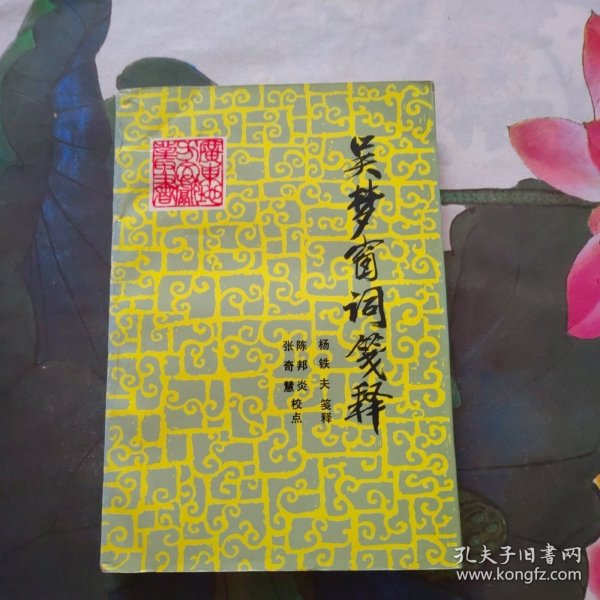 吴梦窗词笺释
杨铁夫 笺释
陈邦炎
张奇慧 校点
广东地
方文献
丛书
孔夫子旧书网
www.kongfz.com